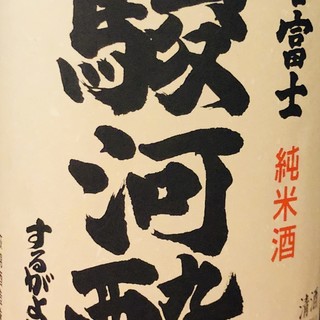 富士
純米酒
駿河酔
するがよ
清酒